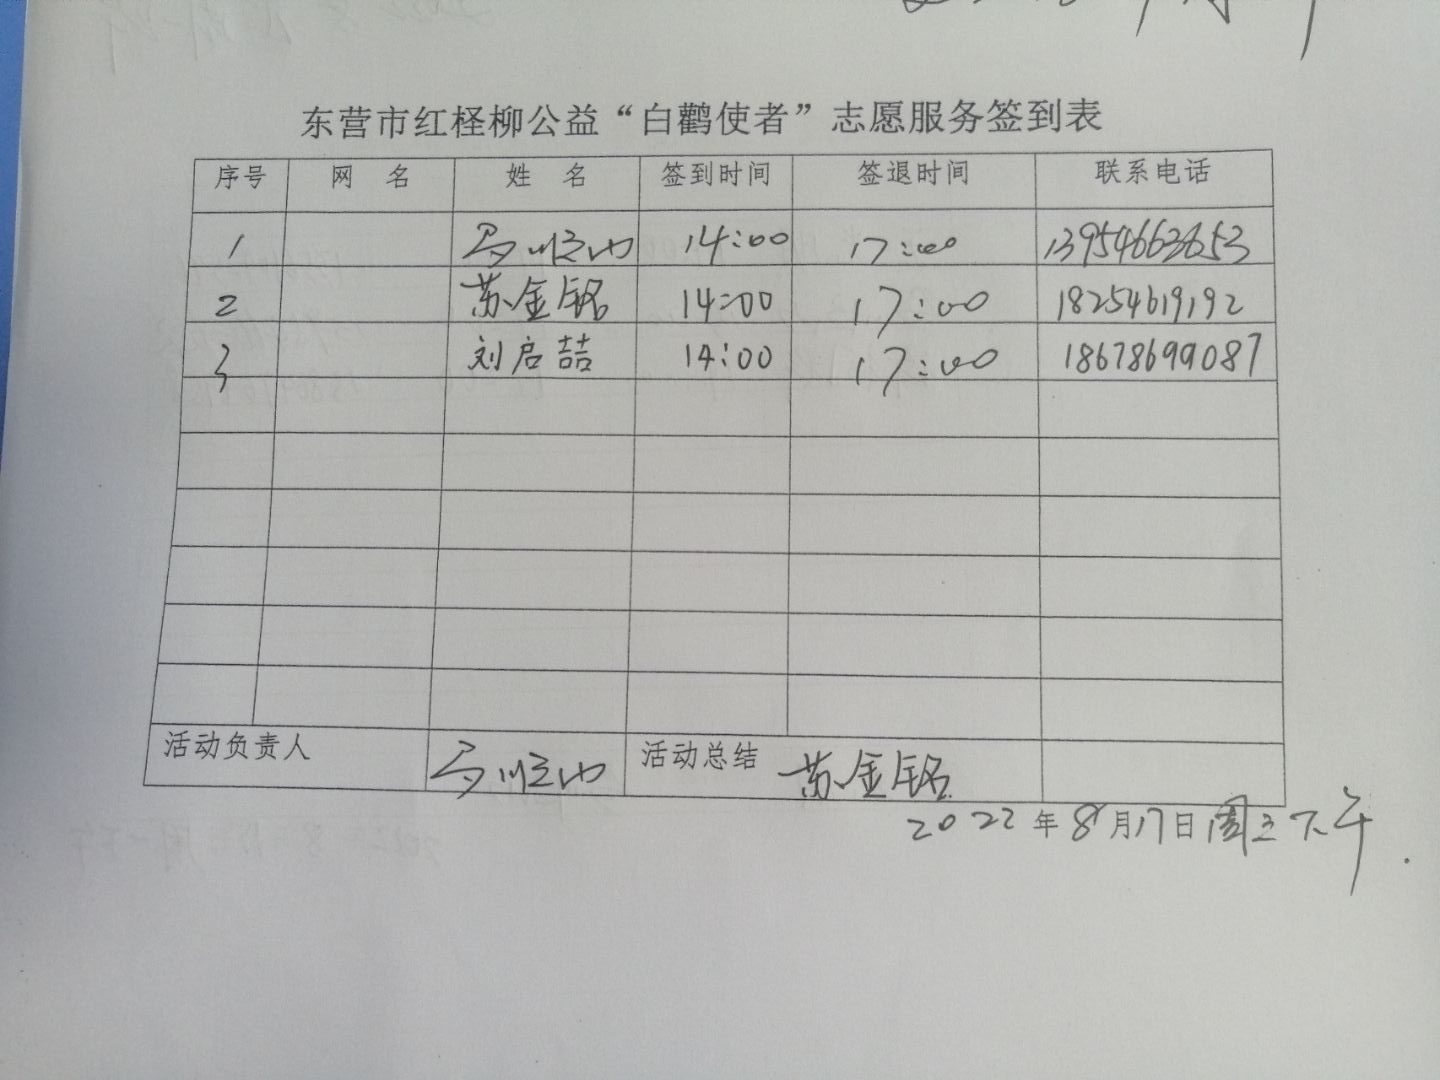 东营市红柽柳公益“白鹳使者”志愿服务签到表
序号 网 名 姓 名 签到时间 签退时间 联系电话
1 14:00 17:00 13954663653
2 苏金铭 14:00 17:00 18254619192
3 刘启喆 14:00 17:00 18678699087
活动负责人 活动总结 苏金铭
2022年8月17日周三下午